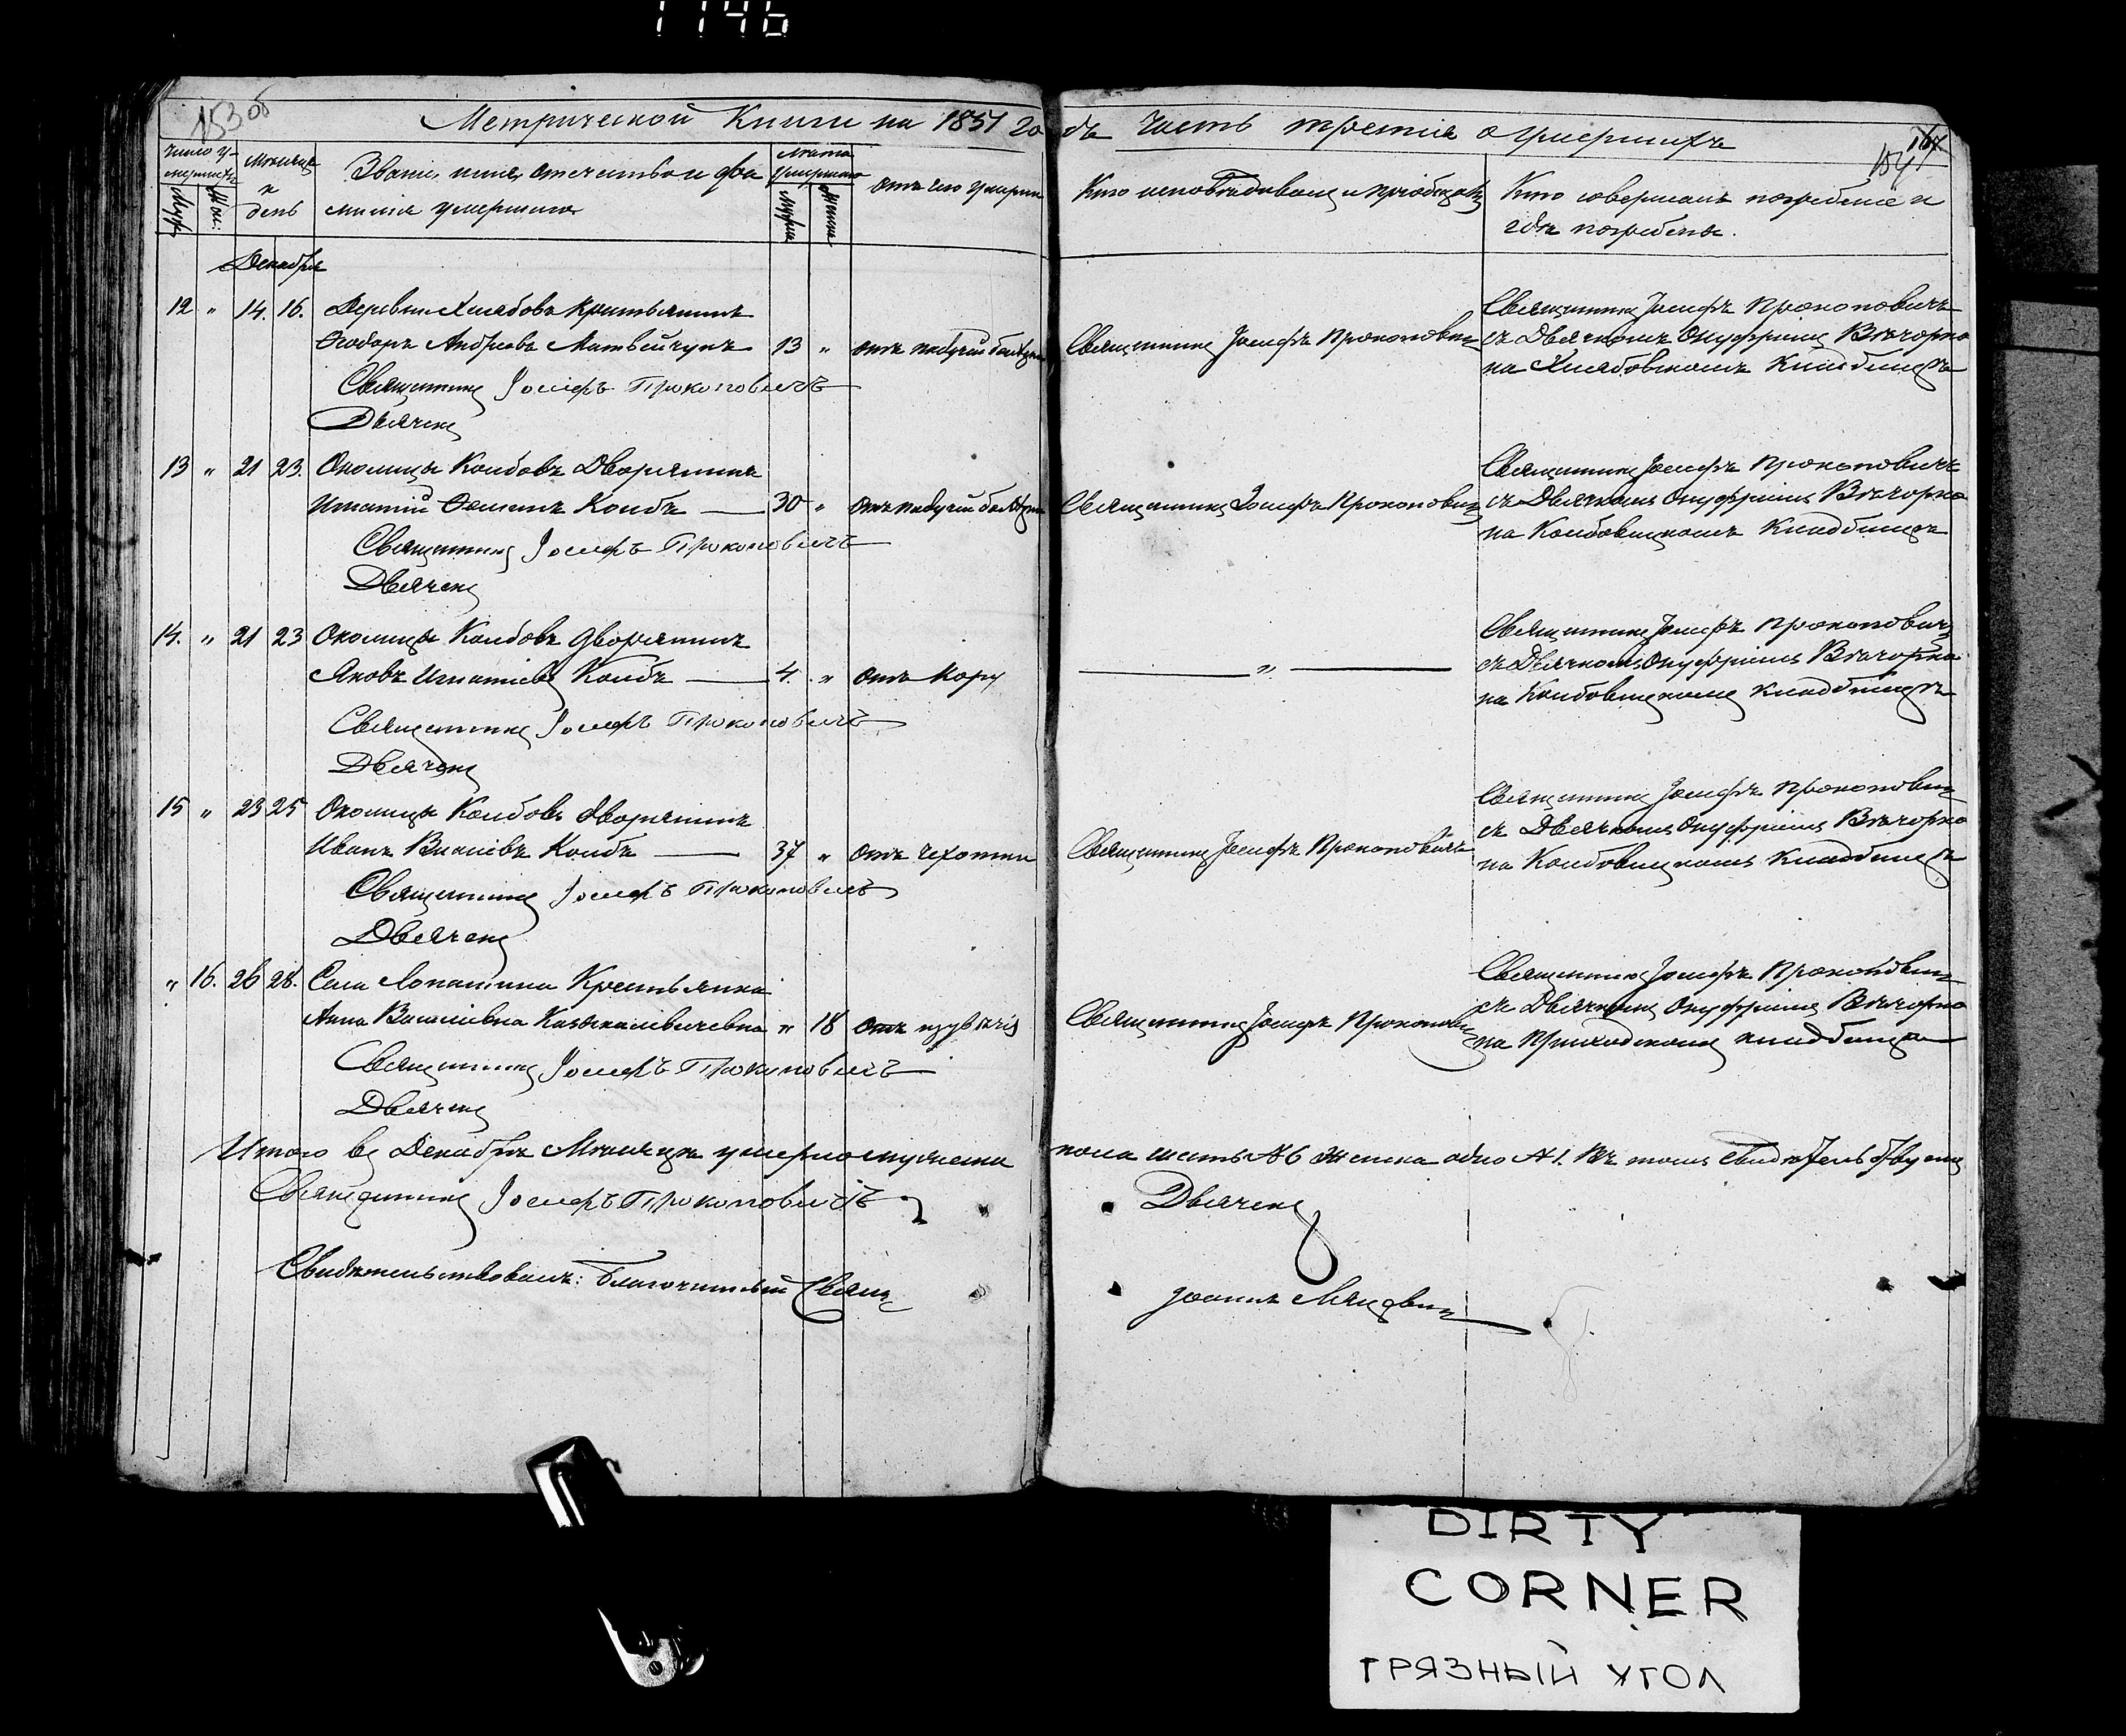 1146
153 об
Метрической Книги на 1851 годъ часть третія о умершихъ
154
Число умершихъ
Муж:
Жен:
Мѣсяцъ и день
Званіе, имя, отчество и фамилія умершаго
Лѣта умершаго
Мужеска
Женска
Отъ чего умеръ
Кто исповѣдывалъ и пріобщалъ
Кто совершалъ погребеніе и гдѣ погребены.
Декабря
12 " 14. 16. Деревни Хлябовъ крестьянинъ
Ѳеодоръ Андреевъ Матвейчукъ 13 " отъ падучей болѣзни
Священникъ Іосифъ Прокоповичъ
Священникъ Іосифъ Прокоповичъ
съ Дьячкомъ Онуфріемъ Вѣчорко
на Хлябовскомъ Кладбищѣ
Священникъ Іосифъ Прокоповичъ
Дьячекъ
13 " 21 23. Околицы Колбовъ Дворянинъ
Игнатій Колбъ 30 " отъ падучей болѣзни
Священникъ Іосифъ Прокоповичъ
Священникъ Іосифъ Прокоповичъ
съ Дьячкомъ Онуфріемъ Вѣчорко
на Колбовицкомъ Кладбищѣ
Священникъ Іосифъ Прокоповичъ
Дьячекъ
14. " 21 23 Околицы Колбовъ дворянинъ
Яковъ Игнатіевъ Колбъ 4. " отъ Кору
"
Священникъ Іосифъ Прокоповичъ
съ Дьячкомъ Онуфріемъ Вѣчорко
на Колбовицкомъ кладбищѣ
Священникъ Іосифъ Прокоповичъ
Дьячекъ
15 " 23 25 Околицы Колбовъ дворянинъ
Иванъ Колбъ 37 " отъ чехотки
Священникъ Іосифъ Прокоповичъ
Священникъ Іосифъ Прокоповичъ
съ Дьячкомъ Онуфріемъ Вѣчорко
на Колбовицкомъ кладбищѣ
Священникъ Іосифъ Прокоповичъ
Дьячекъ
" 16. 26 28. Села Лопатина Крестьянка
Анна Василіевна " 18 отъ
Священникъ Іосифъ Прокоповичъ
Священникъ Іосифъ Прокоповичъ
съ Дьячкомъ Онуфріемъ Вѣчорко
на Приходскомъ кладбищѣ
Священникъ Іосифъ Прокоповичъ
Дьячекъ
Итого въ Декабрѣ Мѣсяцѣ умерло мужеска пола шесть №6 женска одно №1. Въ томъ свидѣтельствуемъ
Священникъ Іосифъ Прокоповичъ
Дьячекъ
Свидѣтельствовалъ: Благочинный Свящ
Іоаннъ
DIRTY
CORNER
ГРЯЗНЫЙ УГОЛ